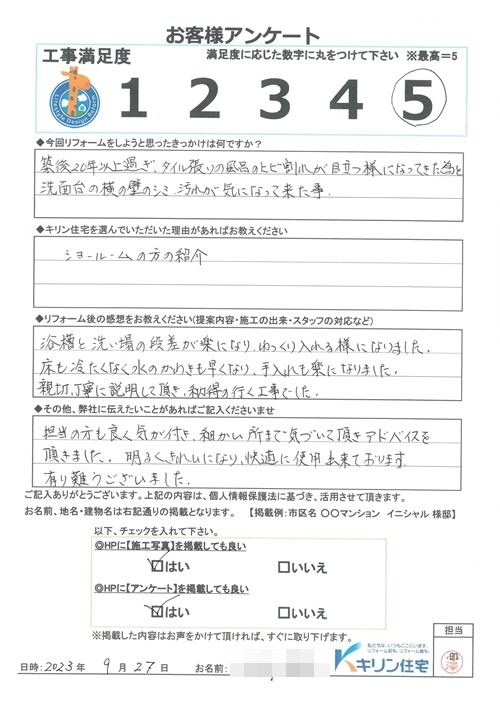 お客様アンケート
工事満足度 満足度に応じた数字に丸をつけて下さい ※最高=5
Lifestyle Design Reform
1 2 3 4 5
◆今回リフォームをしようと思ったきっかけは何ですか?
築後20年以上過ぎ、タイル張りの風呂のヒビ割れが目立つ様になってきた為と
洗面台の横の壁のシミ、汚れが気になって来た事.
◆キリン住宅を選んでいただいた理由があればお教えください
ショールームの方の紹介
◆リフォーム後の感想をお教えください(提案内容・施工の出来・スタッフの対応など)
浴槽と洗い場の段差が楽になり、ゆっくり入れる様になりました.
床も冷たくなく水のかわきも早くなり、手入れも楽になりました.
親切、丁寧に説明して頂き、納得の行く工事でした.
◆その他、弊社に伝えたいことがあればご記入くださいませ
担当の方も良く気が付き、細かい所まで気づいて頂きアドバイスを
頂きました. 明るくきれいになり、快適に使用出来ております.
有り難うございました.
ご記入ありがとうございます。上記の内容は、個人情報保護法に基づき、活用させて頂きます。
お名前、地名・建物名は右記通りの掲載となります。 【掲載例:市区名 〇〇マンション イニシャル 様邸】
以下、チェックを入れて下さい。
◎HPに【施工写真】を掲載しても良い
☑はい □いいえ
◎HPに【アンケート】を掲載しても良い
☑はい □いいえ
※掲載した内容はお声をかけて頂ければ、すぐに取り下げます。
日時:2023年 9月27日 お名前:
私たちは、いつもここにいます。
リフォーム前も、リフォーム後も。
キリン住宅
担当